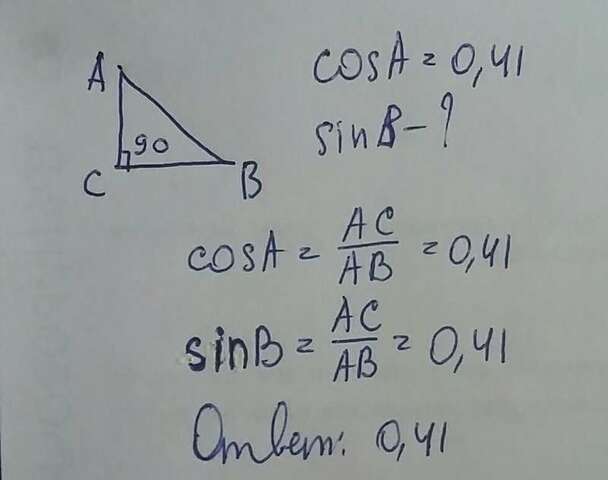 A
90
C
B
cosA = 0,41
sinB - ?
cosA = AC/AB = 0,41
sinB = AC/AB = 0,41
Ответ: 0,41